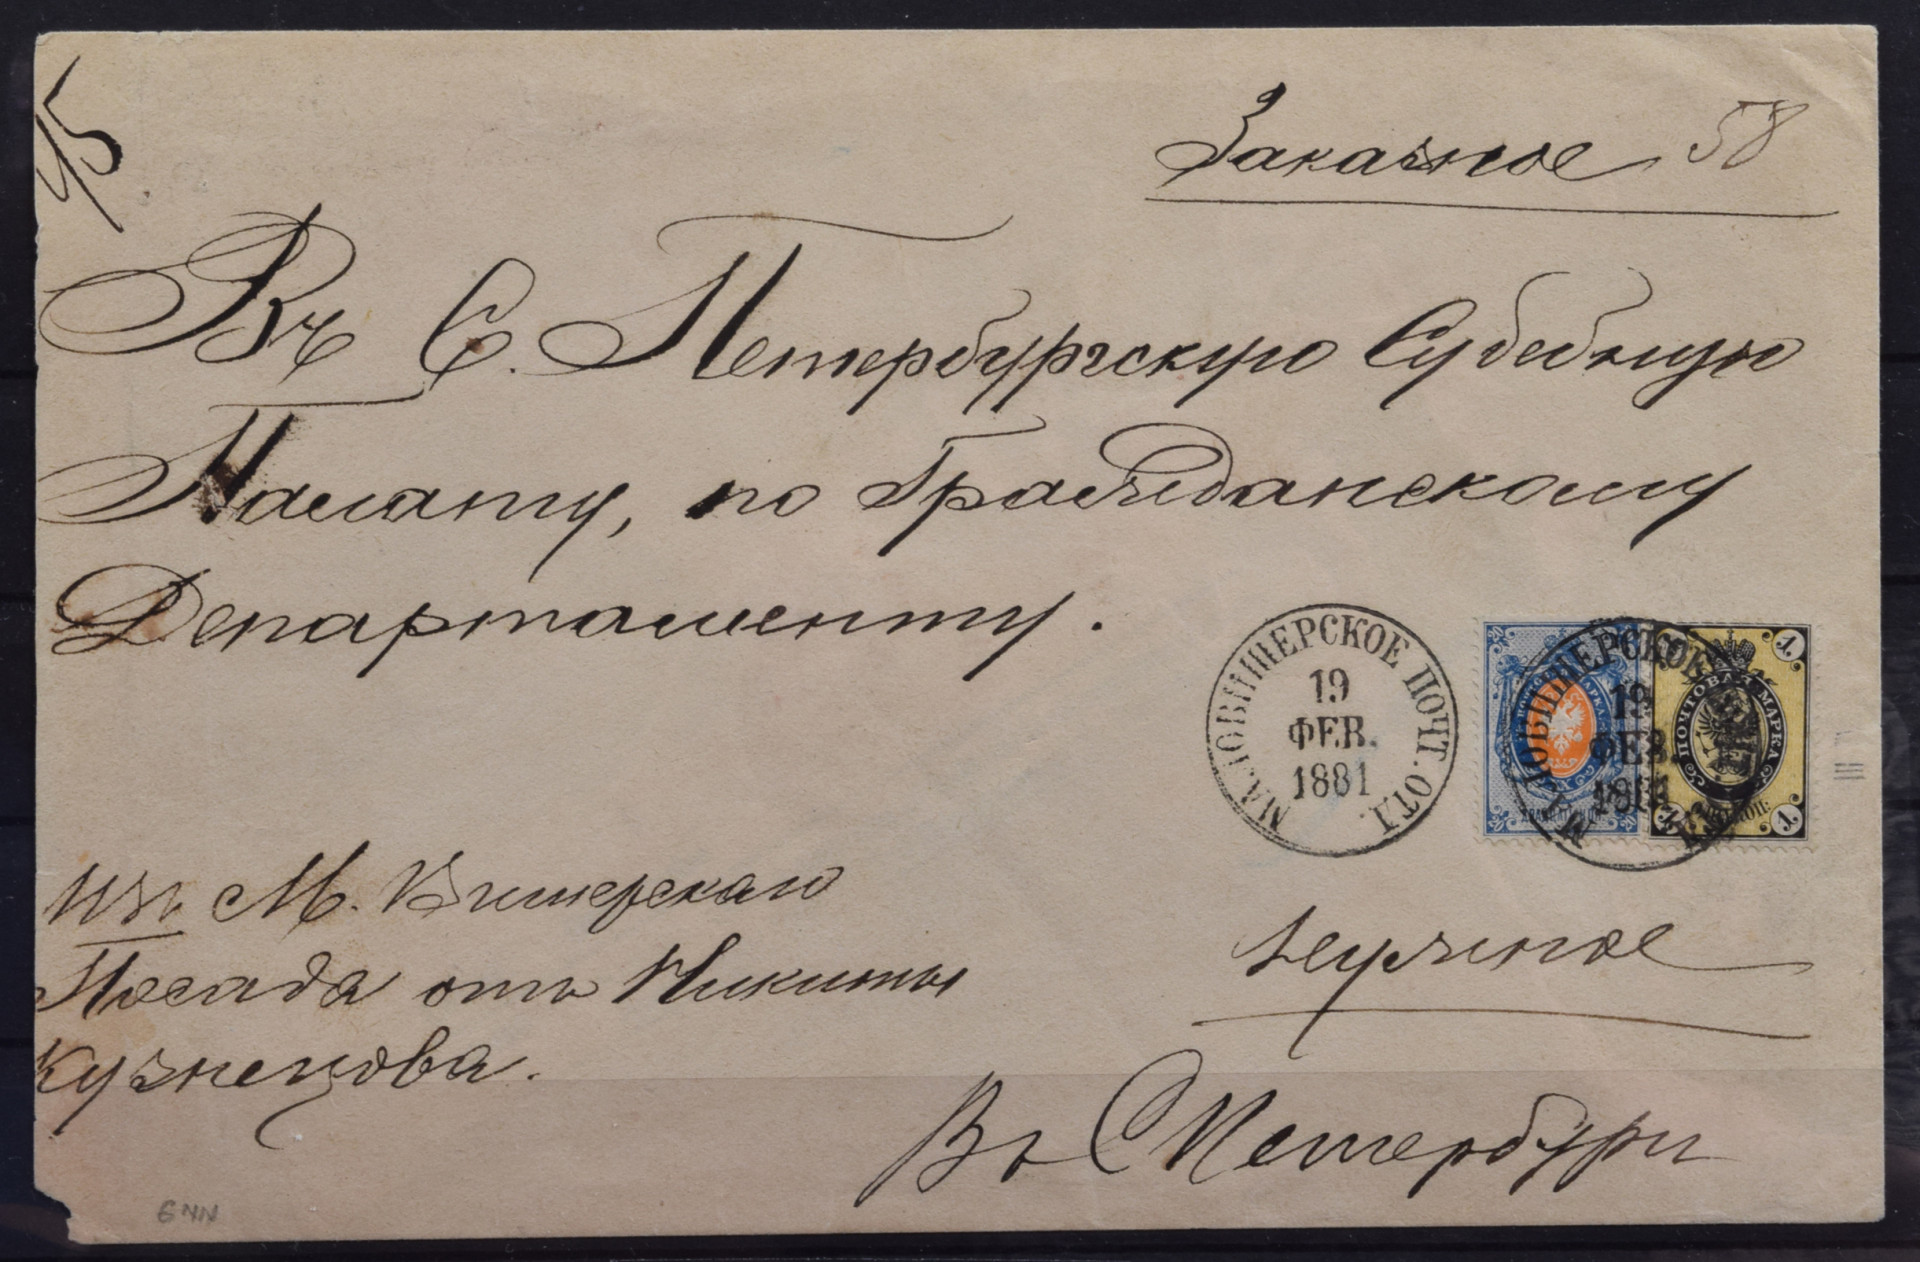 45
Заказное 58
Въ С. Петербургскую Судебную
Палату, по Гражданскому
Департаменту.
МАЛОВИШЕРСКОЕ ПОЧТ. ОТД.
19
ФЕВ.
1881
МАЛОВИШЕРСКОЕ
19
ФЕВ.
1881
ПОЧТОВАЯ МАРКА
1
1
1
КОП.
Изъ М. Вишерскаго
Посада отъ Никиты
Кузнецова.
нужное
Въ СПетербургъ
6NN